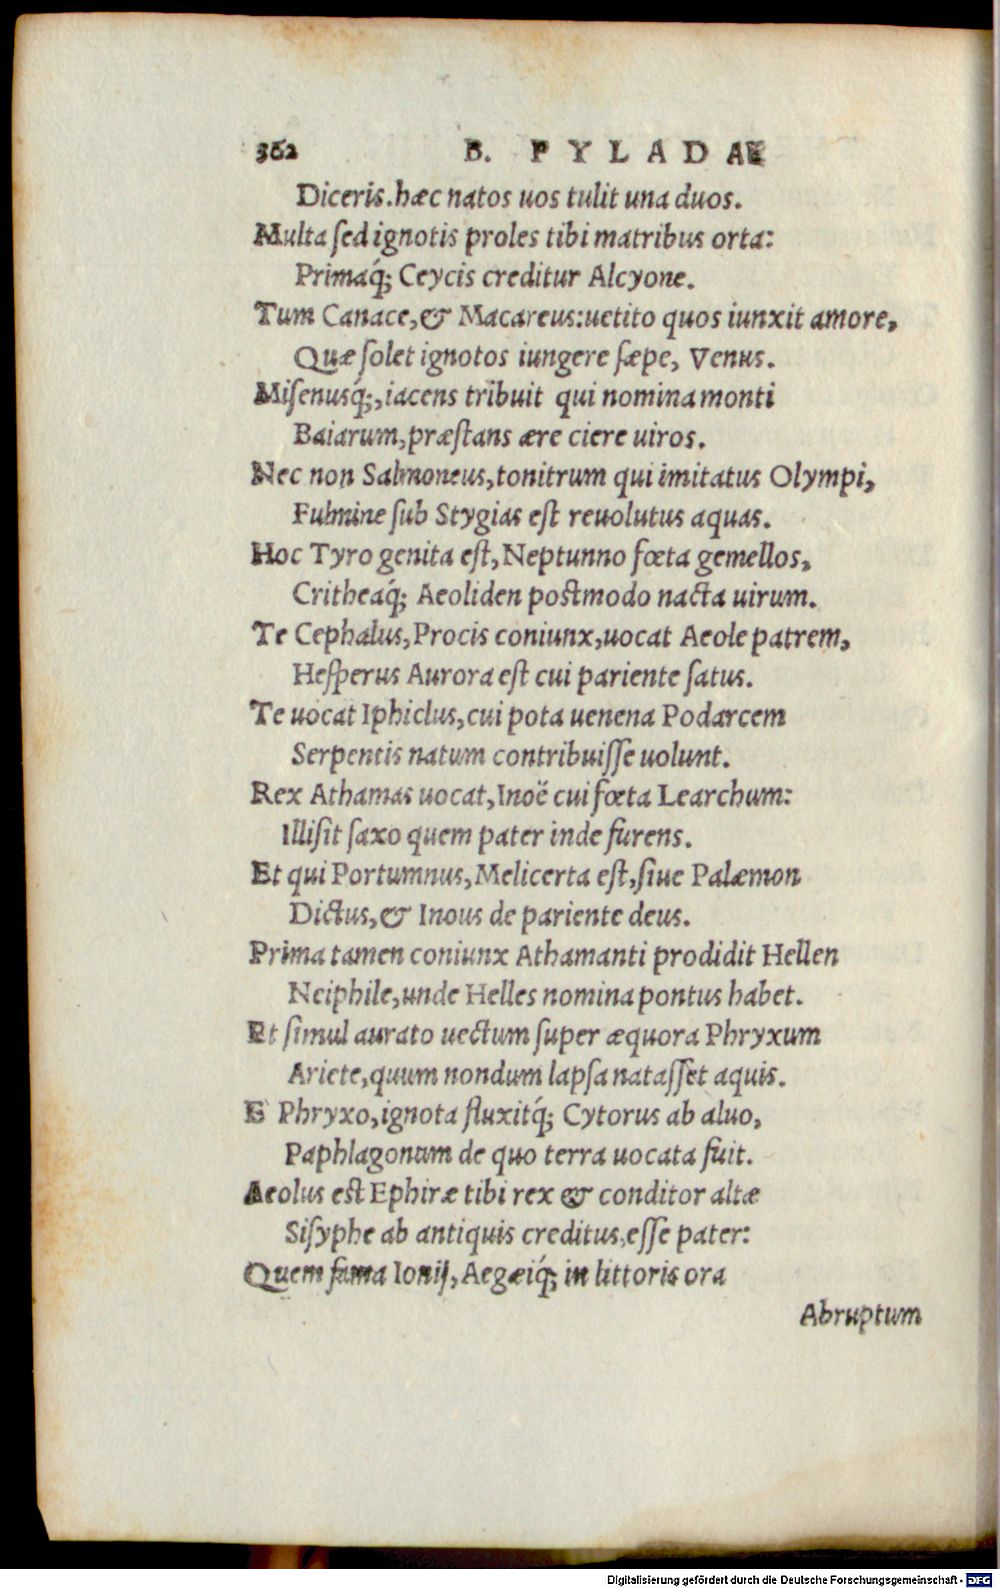 362 B. PYLADAE
Diceris.hæc natos uos tulit una duos.
Multa ſed ignotis proles tibi matribus orta:
Primaq́; Ceycis creditur Alcyone.
Tum Canace,& Macareus:uetito quos iunxit amore,
Quæ ſolet ignotos iungere ſæpe, Venus.
Miſenusq́;,iacens tribuit qui nomina monti
Baiarum,præſtans ære ciere uiros.
Nec non Salmoneus,tonitrum qui imitatus Olympi,
Fulmine ſub Stygias eſt reuolutus aquas.
Hoc Tyro genita eſt,Neptunno fœta gemellos,
Critheaq́; Aeoliden postmodo nacta uirum.
Te Cephalus,Procis coniunx,uocat Aeole patrem,
Heſperus Aurora eſt cui pariente ſatus.
Te uocat Iphiclus,cui pota uenena Podarcem
Serpentis natum contribuiſſe uolunt.
Rex Athamas uocat,Inoë cui fœta Learchum:
Illiſit ſaxo quem pater inde furens.
Et qui Portumnus,Melicerta eſt,ſiue Palæmon
Dictus,& Inous de pariente deus.
Prima tamen coniunx Athamanti prodidit Hellen
Neiphile,unde Helles nomina pontus habet.
Et ſimul aurato uectum ſuper æquora Phryxum
Ariete,quum nondum lapſa nataſſet aquis.
E Phryxo,ignota fluxitq́; Cytorus ab aluo,
Paphlagonum de quo terra uocata fuit.
Aeolus est Ephiræ tibi rex & conditor altæ
Siſyphe ab antiquis creditus,eſſe pater:
Quem fama Ionij,Aegæiq́; in littoris ora
Abruptum
Digitalisierung gefördert durch die Deutsche Forschungsgemeinschaft - DFG